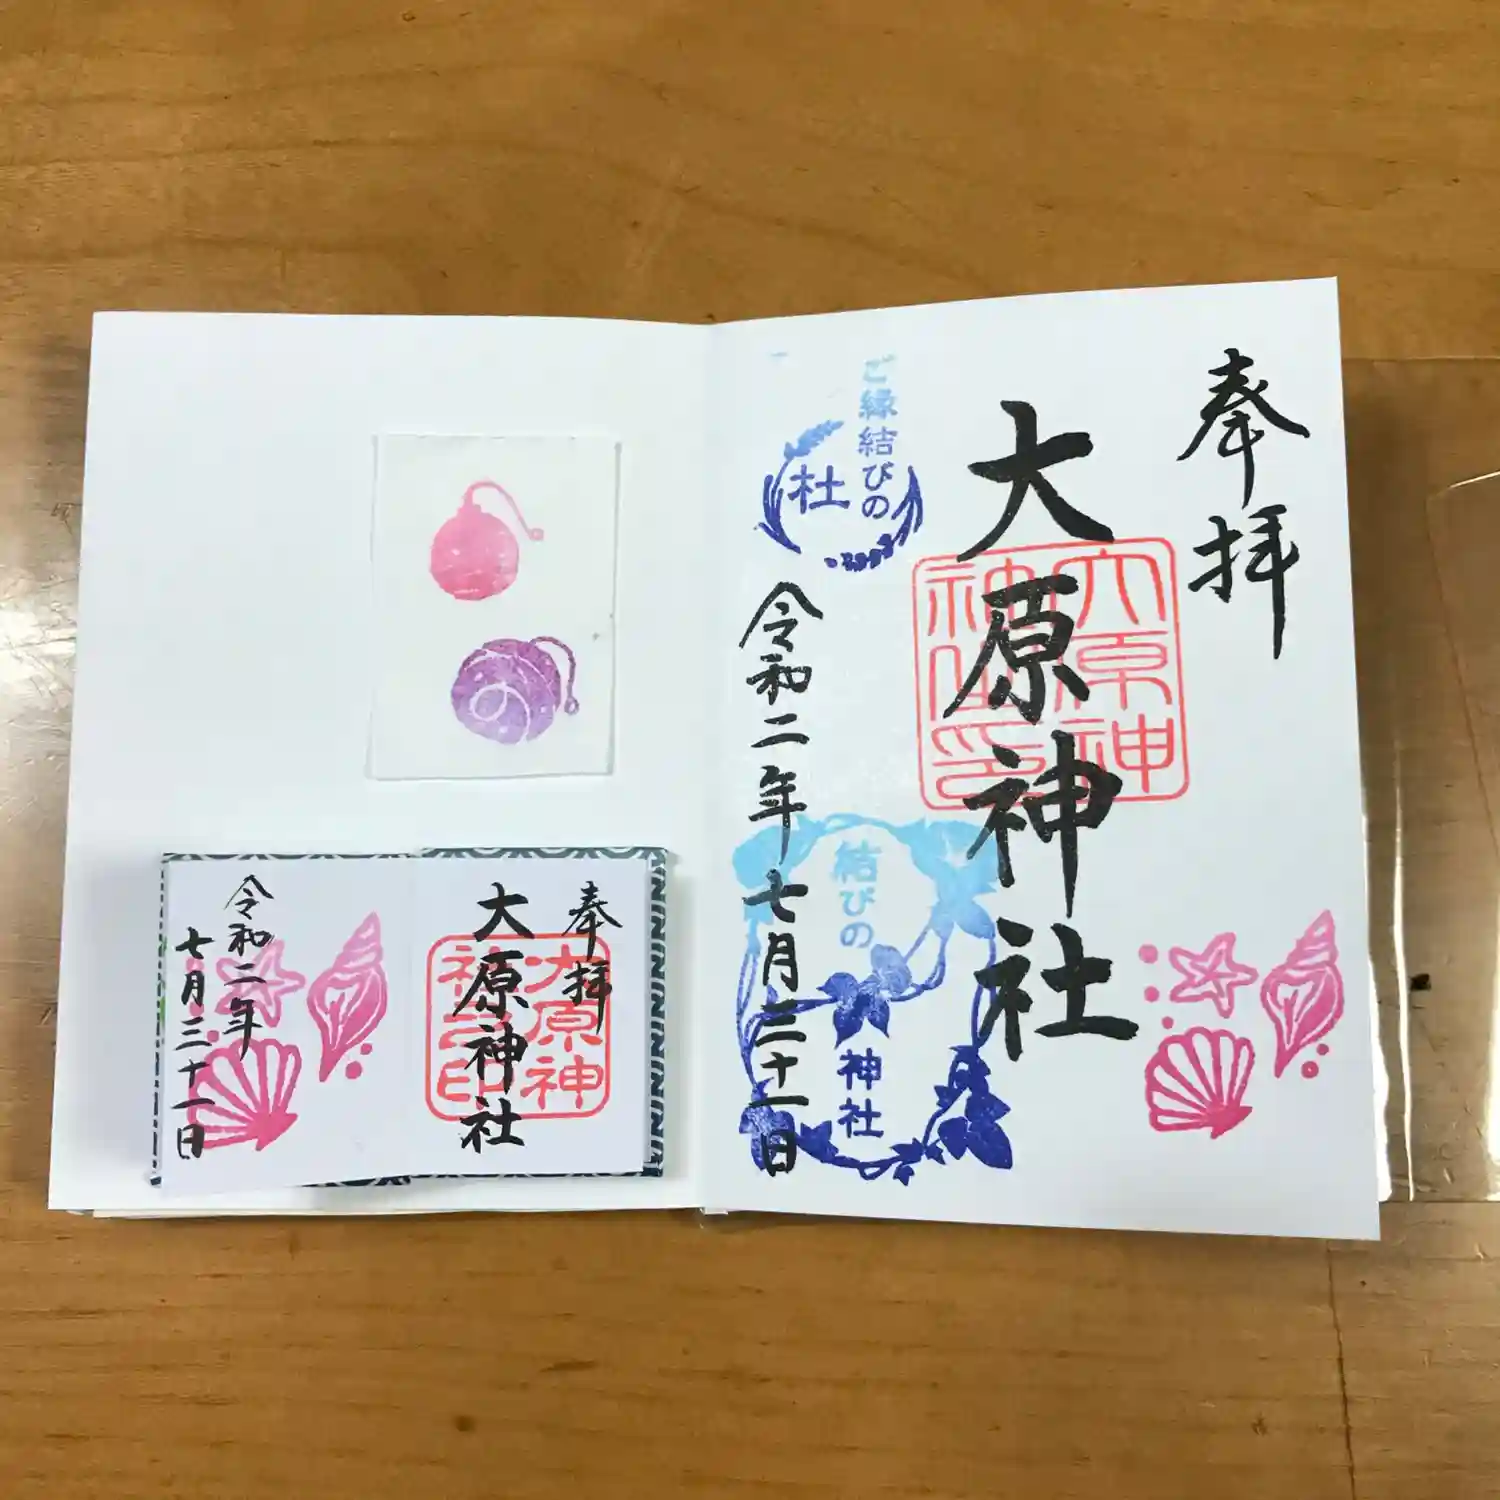 奉拝
大原神社
大原神
社之印
ご縁結びの
杜
令和二年七月三十一日
結びの
神社
奉拝
大原神社
大原神
社之印
令和二年
七月三十一日